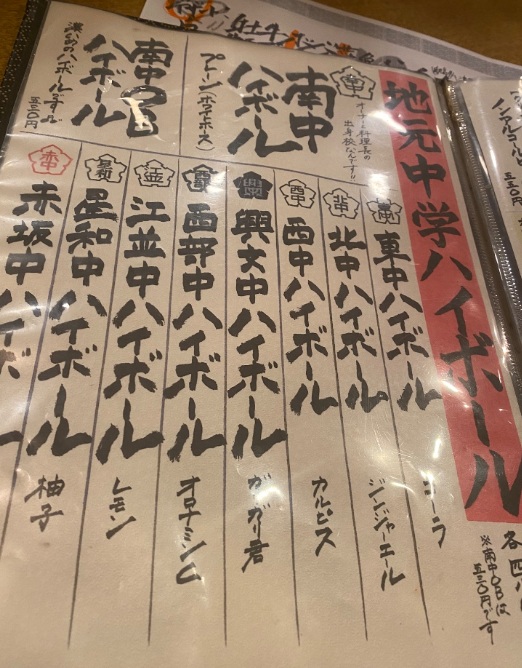 地元中学ハイボール
※南中OBは
五三〇円です
南中
オーナー料理長の
出身校なんです!!
南中
ハイボール
プレーン(ホワイトホース)
ハイボール
濃いめのハイボールです
五三〇円
東中ハイボール
コーラ
北中
北中ハイボール
ジンジャーエール
西中
西中ハイボール
カルピス
興文中ハイボール
ガリガリ君
西部中ハイボール
オロナミンC
江並中ハイボール
レモン
星和中ハイボール
柚子
赤中
赤坂中ハイボ
ノンアルコール
三三〇円